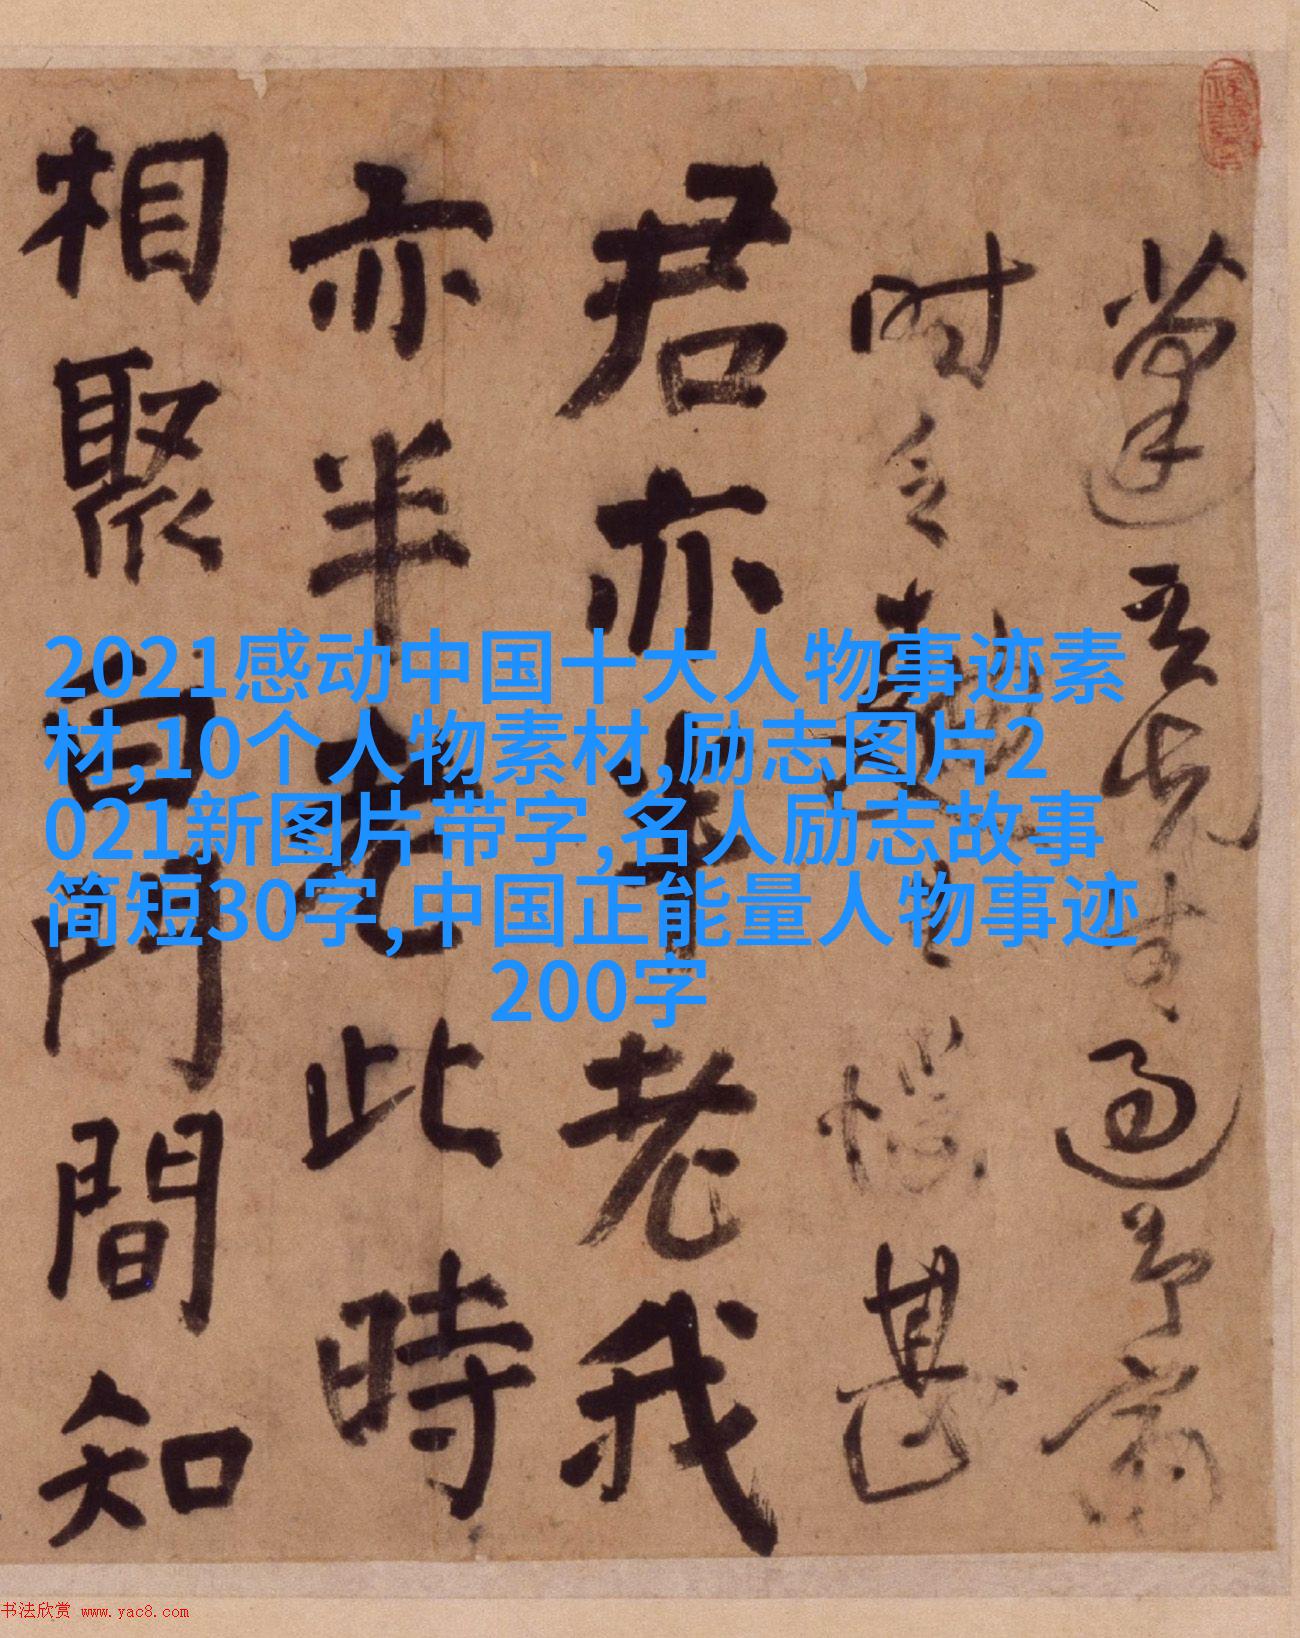 吾先生過予齋
时
甚
君亦半老我
亦半老此時
相聚白門間知
2021感动中国十大人物事迹素
材,10个人物素材,励志图片2
021新图片带字,名人励志故事
简短30字,中国正能量人物事迹
200字
书法欣赏 www.yac8.com